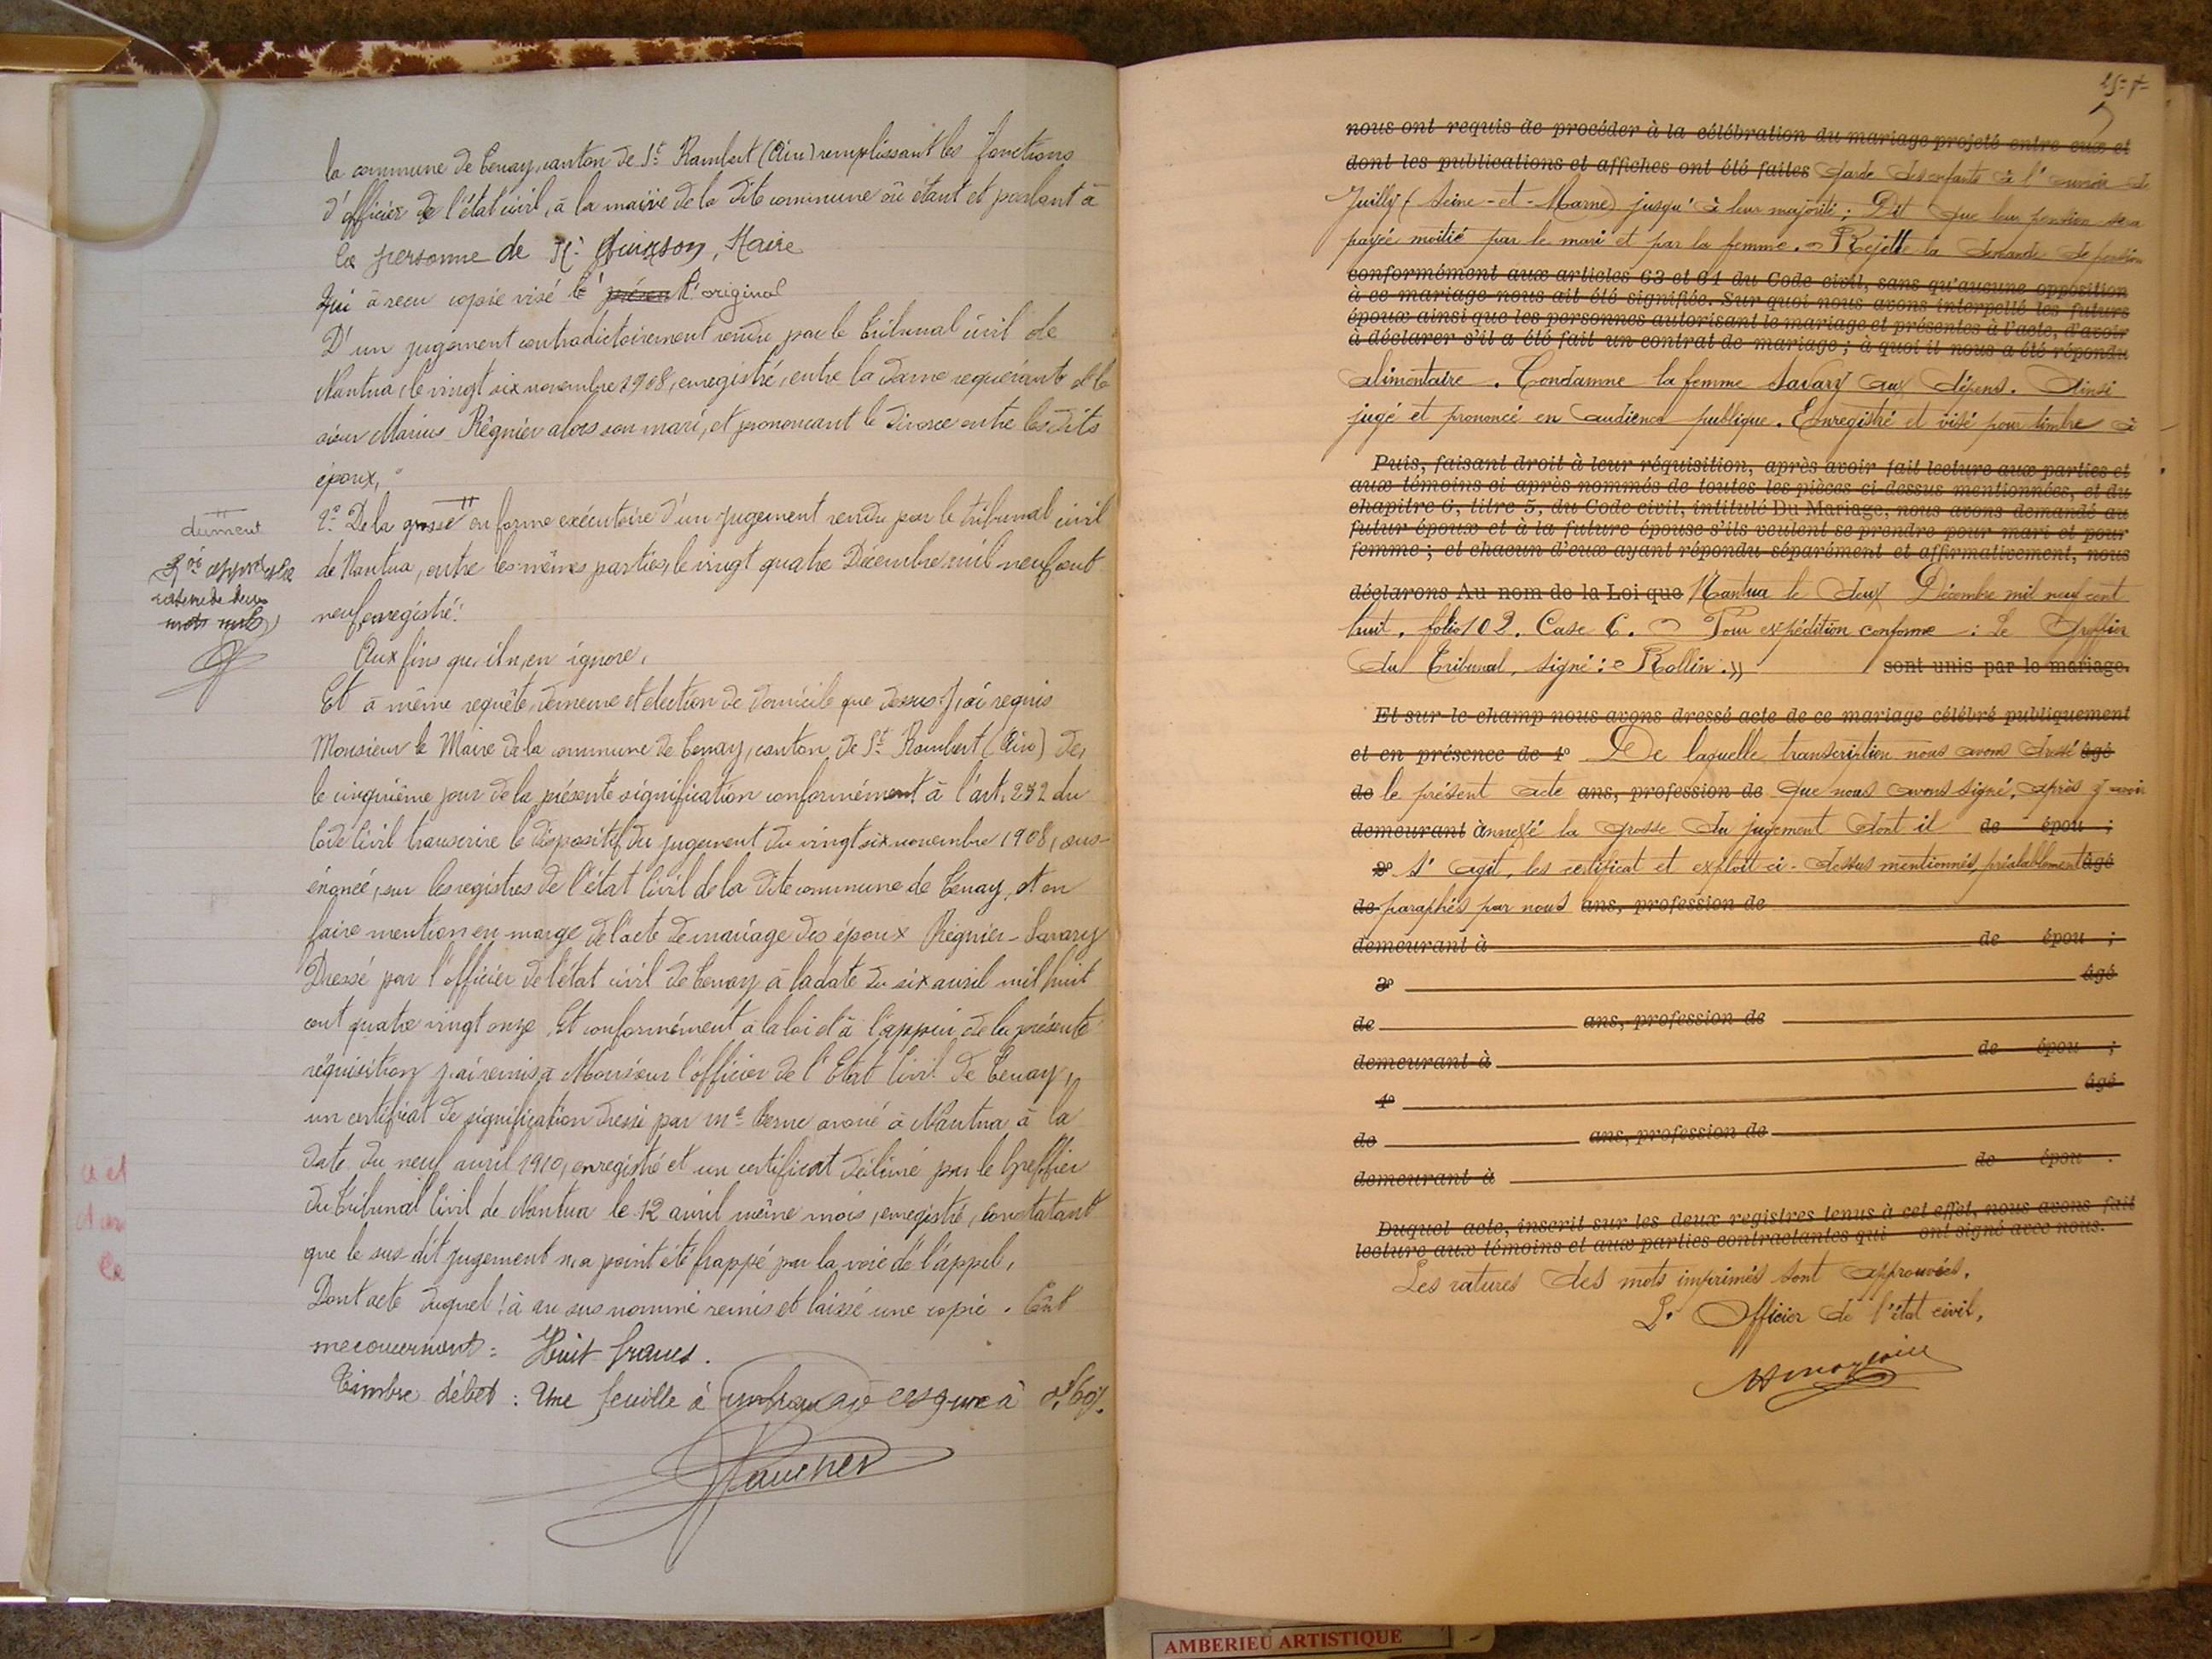 la commune de Tenay, canton de St Rambert (Ain) remplissant les fonctions
d'officier de l'état civil, à la mairie de la dite commune où étant et parlant à
la personne de Mr Quinson, Maire
qui à reçu copie visé l' présen l'original
D'un jugement contradictoirement rendu par le tribunal civil de
Nantua, le vingt six novembre 1908, enregistré, entre la dame requérante et le
sieur Marius Régnier alors son mari, et prononcant le divorce entre les dits
époux,
2° De la grosse en forme exécutoire d'un jugement rendu par le tribunal civil
dument
de Nantua, entre les mêmes parties, le vingt quatre Décembre mil neuf cent
neuf, enregistré.
mots nuls
Aux fins qu'il n'en ignore,
Et à même requête, demeure et élection de domicile que dessus j'ai requis
Monsieur le Maire de la commune de Tenay, canton de St Rambert (Ain) de,
le cinquième jour de la présente signification conformément à l'art. 252 du
Code Civil transcrire le dispositif du jugement du vingt six novembre 1908, sus-
énoncé, sur les registres de l'état Civil de la dite commune de Tenay, et en
faire mention en marge de l'acte de mariage des époux Régnier-Savary
Dressé par l'officier de l'état civil de Tenay à la date du six avril mil huit
cent quatre vingt onze. Et conformément à la loi et à l'appui de la présente
réquisition j'ai remis à Monsieur l'officier de l'Etat Civil de Tenay,
un certificat de signification dressé par Me avoué à Nantua à la
date du neuf avril 1910, enregistré et un certificat délivré par le Greffier
du Tribunal Civil de Nantua le 12 avril même mois, enregistré, constatant
que le sus dit jugement n'a point été frappé par la voie de l'appel,
Dont acte duquel j'ai au sus nommé remis et laissé une copie. Coût
me concernant : Huit francs.
Timbre débet : Une feuille à
nous ont requis de procéder à la célébration du mariage projeté entre eux et
dont les publications et affiches ont été faites garde des enfants à l' de
Juilly (Seine-et-Marne) jusqu'à leur majorité ; Dit que leur pension sera
payée moitié par le mari et par la femme. Rejette la demande de pension
conformément aux articles 63 et 64 du Code civil, sans qu'aucune opposition
à ce mariage nous ait été signifiée. Sur quoi nous avons interpellé les futurs
époux ainsi que les personnes autorisant le mariage et présentes à l'acte, d'avoir
à déclarer s'il a été fait un contrat de mariage ; à quoi il nous a été répondu
alimentaire. Condamne la femme Savary aux dépens. Ainsi
jugé et prononcé en audience publique. Enregistré et visé pour timbre à
Puis, faisant droit à leur réquisition, après avoir fait lecture aux parties et
aux témoins ci après nommés de toutes les pièces ci-dessus mentionnées, et du
chapitre 6, titre 5, du Code civil, intitulé Du Mariage, nous avons demandé au
futur époux et à la future épouse s'ils veulent se prendre pour mari et pour
femme ; et chacun d'eux ayant répondu séparément et affirmativement, nous
déclarons Au nom de la Loi que Nantua le deux Décembre mil neuf cent
huit, folio 102, Case 6. Pour expédition conforme : Le Greffier
du Tribunal, signé : Rollin. » sont unis par le mariage.
Et sur le champ nous avons dressé acte de ce mariage célébré publiquement
et en présence de 1° De laquelle transcription nous avons dressé âgé
de le présent acte ans, profession de que nous avons signé, après y avoir
demeurant annexé la grosse du jugement dont il de épou ;
2° s'agit, les certificat et exploit ci-dessus mentionnés, préalablement âgé
de paraphés par nous ans, profession de
demeurant à de épou ;
3° âgé
de ans, profession de
demeurant à de épou ;
4° âgé
de ans, profession de
demeurant à de épou .
Duquel acte, inscrit sur les deux registres tenus à cet effet, nous avons fait
lecture aux témoins et aux parties contractantes qui ont signé avec nous.
Les ratures des mots imprimés sont approuvées.
L'Officier de l'état civil,
AMBERIEU ARTISTIQUE